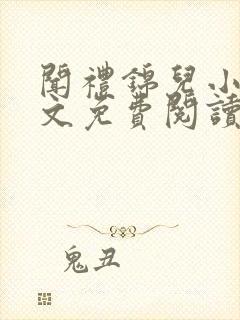 聞禮錦兒小
文免費閱讀
鬼丑